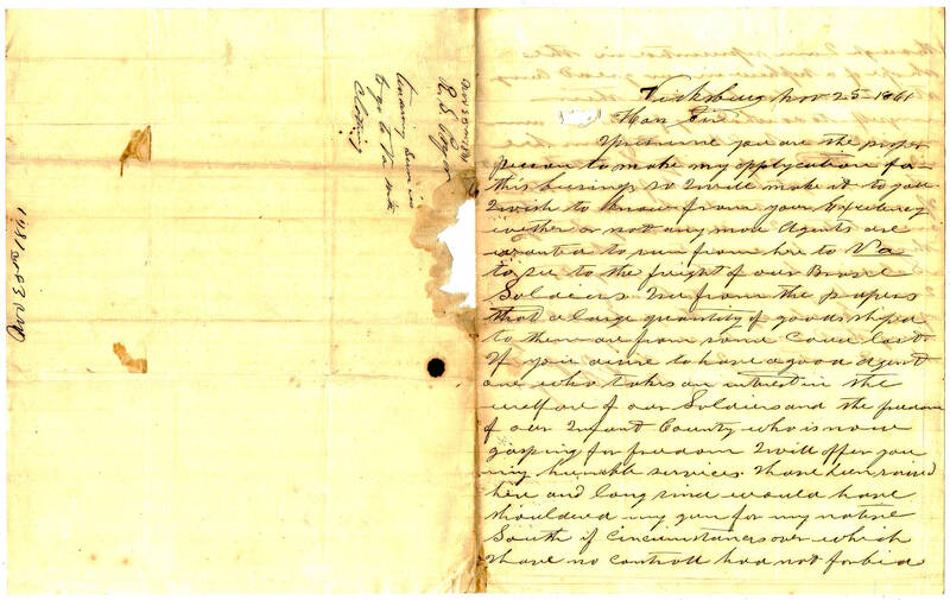 answered
R S
tendering services
to go to Va with
Clothing
Vicksburg Nov 25 1861
Hon Sir
I presume you are the proper
person to make my applycation for
this buisings so I will make it to you
I wish to know from your Excelency
wether or not any more Agents are
wanted to run from here to Va
to see to the freight of our Brave
Soldiers I see from the papers
that a large quantity of goods shiped
to them are from some Cause lost
If you desire to have a good Agent
one who takes an interest in the
welfare of our Soldiers and the freedom
of our Infant County who is now
gasping for freedom I will offer you
my humble services I have been raised
here and long since would have
shouldered my gun for my native
South if Circumstances over which
I have no controll had not forbid